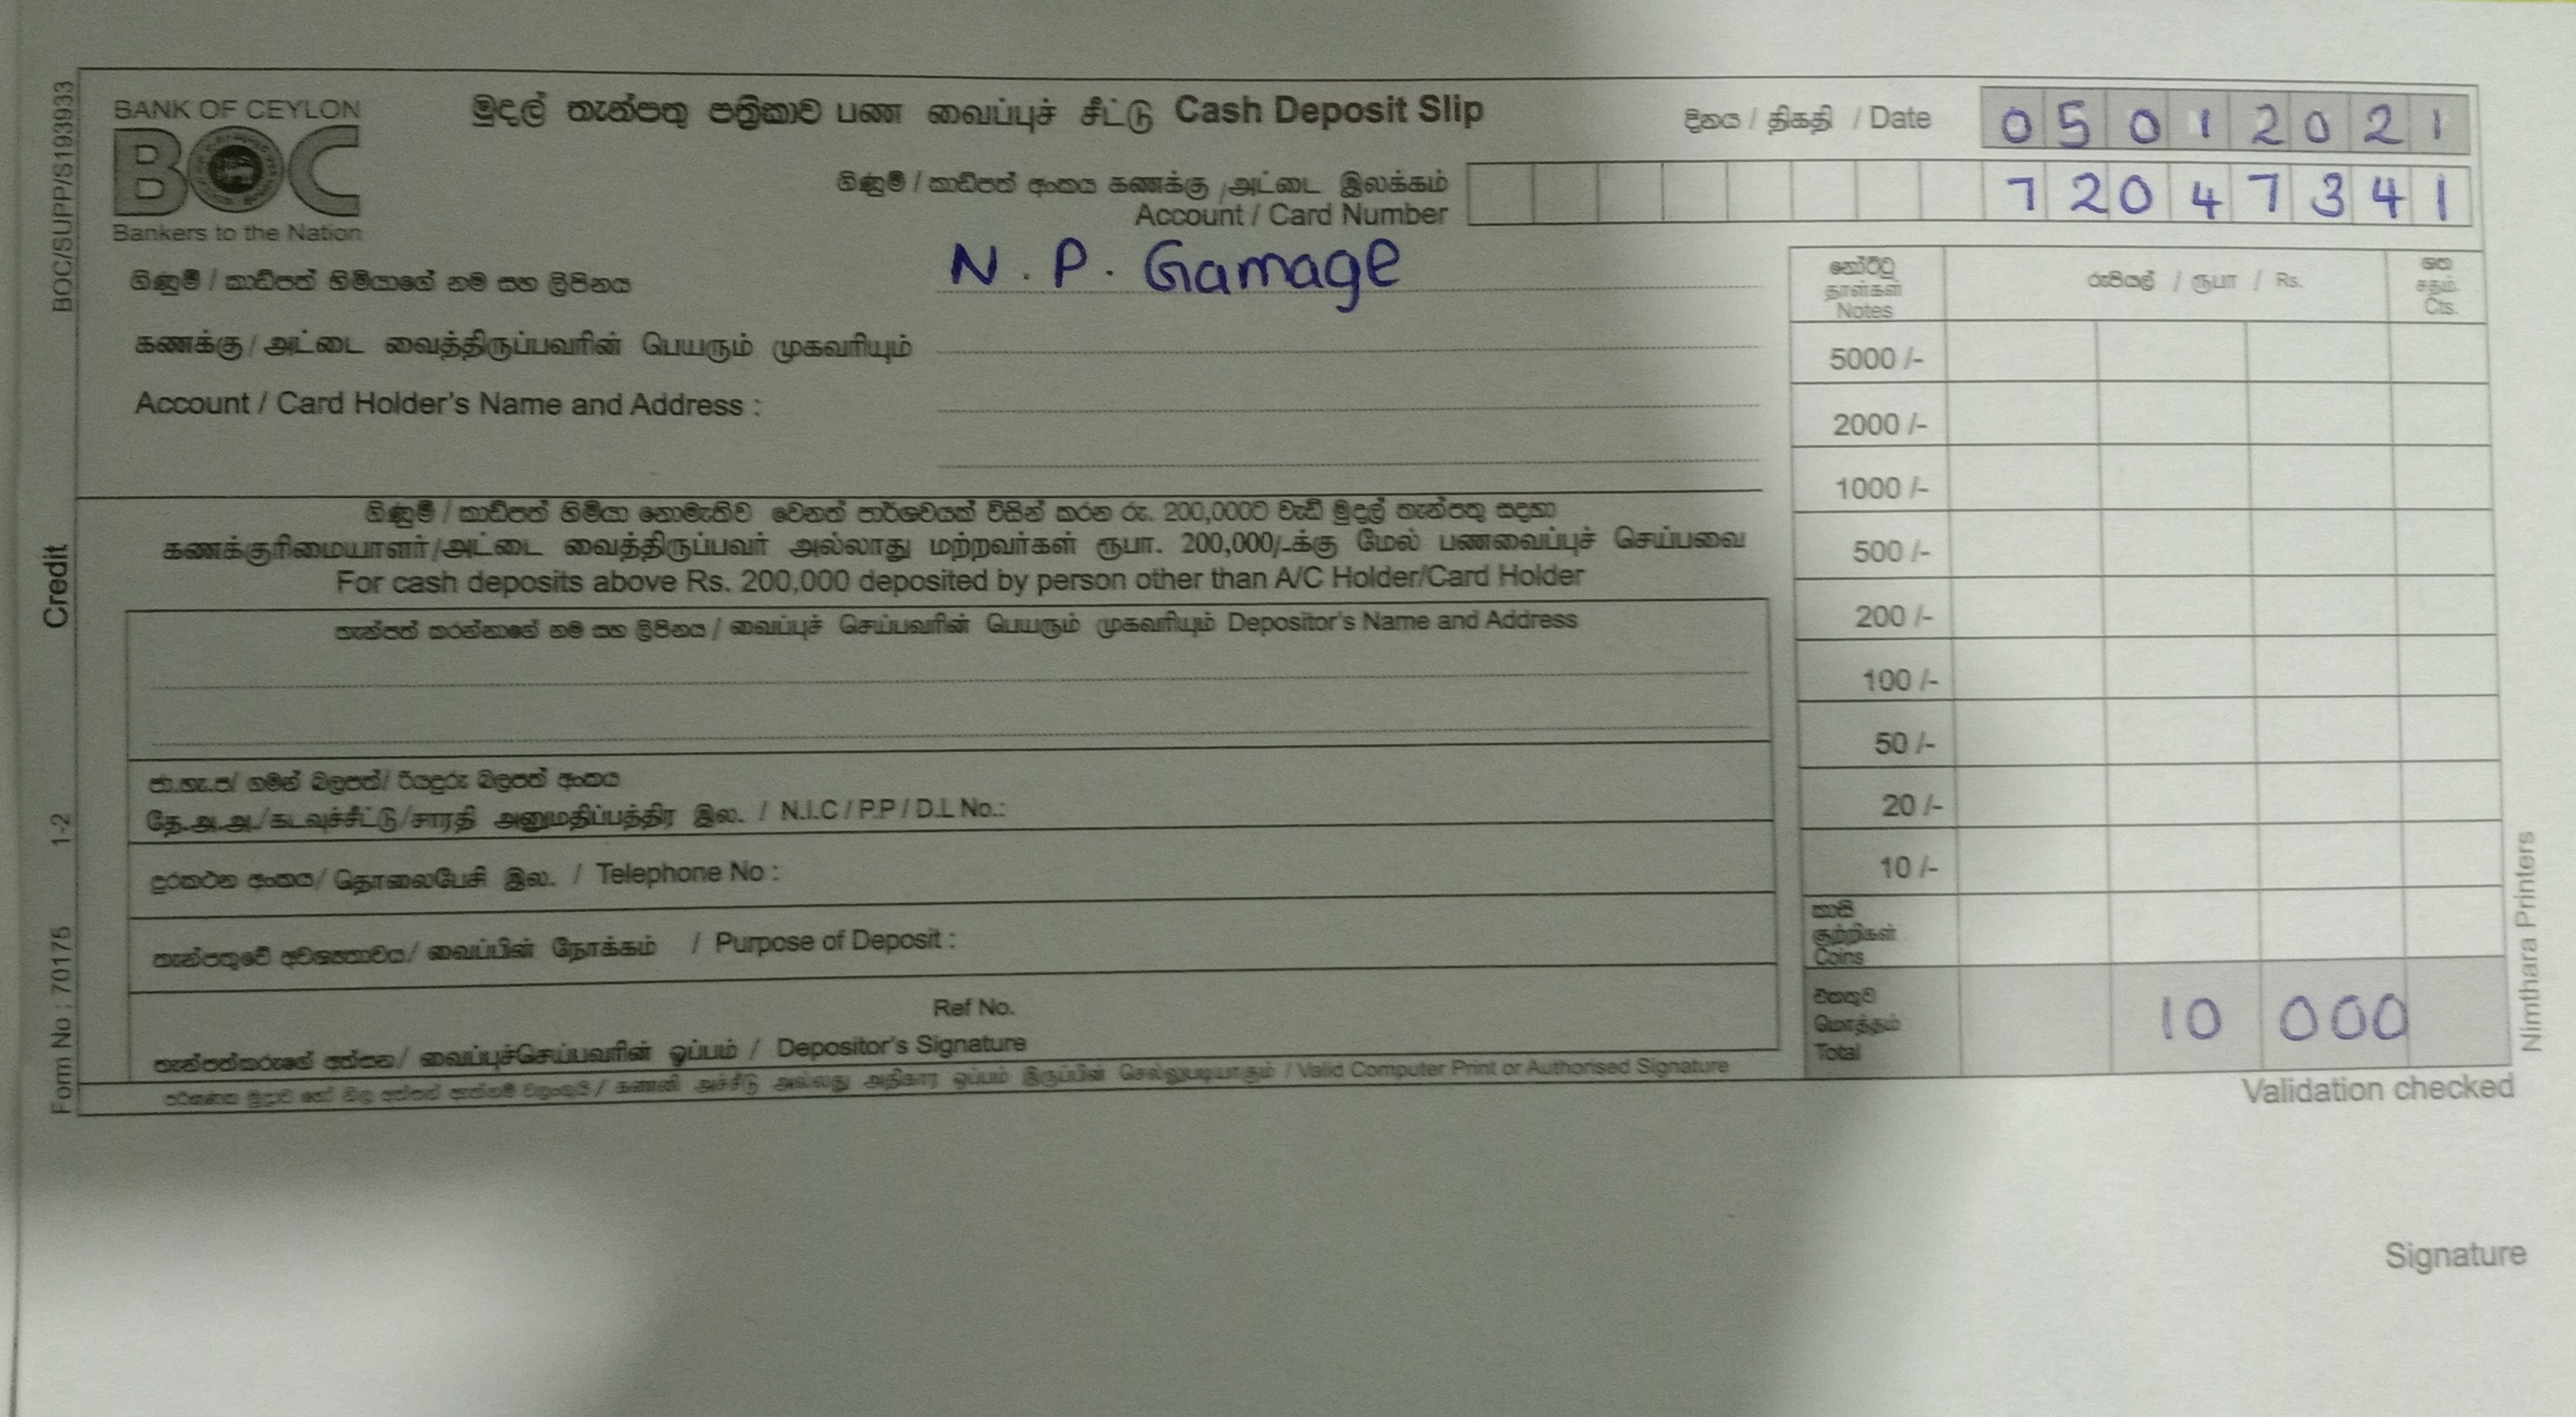 BANK OF CEYLON
BOC
Bankers to the Nation
මුදල් තැන්පතු පත්‍රිකාව பண வைப்புச் சீட்டு Cash Deposit Slip
දිනය / திகதி / Date 05012021
ගිණුම් / කාඩ්පත් අංකය கணக்கு / அட்டை இலக்கம்
Account / Card Number 72047341
ගිණුම් / කාඩ්පත් හිමියාගේ නම සහ ලිපිනය N. P. Gamage
கணக்கு / அட்டை வைத்திருப்பவரின் பெயரும் முகவரியும்
Account / Card Holder's Name and Address :
ගිණුම් / කාඩ්පත් හිමියා නොමැතිව වෙනත් පාර්ශවයක් විසින් කරන රු. 200,000ට වැඩි මුදල් තැන්පතු සදහා
கணக்குரிமையாளர்/அட்டை வைத்திருப்பவர் அல்லாது மற்றவர்கள் ரூபா. 200,000/-க்கு மேல் பணவைப்புச் செய்பவை
For cash deposits above Rs. 200,000 deposited by person other than A/C Holder/Card Holder
තැන්පත් කරන්නාගේ නම සහ ලිපිනය / வைப்புச் செய்பவரின் பெயரும் முகவரியும் Depositor's Name and Address
ජා.හැ.ප/ ගමන් බලපත්/ රියදුරු බලපත් අංකය
தே.அ.அ./கடவுச்சீட்டு/சாரதி அனுமதிப்பத்திர இல. / N.I.C / P.P / D.L No.:
දුරකථන අංකය/ தொலைபேசி இல. / Telephone No :
තැන්පතුවේ අවශ්‍යතාවය/ வைப்பின் நோக்கம் / Purpose of Deposit :
Ref No.
තැන්පත්කරුගේ අත්සන/ வைப்புச்செய்பவரின் ஒப்பம் / Depositor's Signature
கணனி அச்சீடு அல்லது அதிகார ஒப்பம் இருப்பின் செல்லுபடியாகும் / Valid Computer Print or Authorised Signature
නෝට්ටු
தாள்கள்
Notes
රුපියල් / ரூபா / Rs.
ශත
சதம்.
Cts.
5000 /-
2000 /-
1000 /-
500 /-
200 /-
100 /-
50 /-
20 /-
10 /-
කාසි
குற்றிகள்
Coins
එකතුව
மொத்தம்
Total
10 000
Validation checked
Signature
BOC/SUPP/S193933
Credit
1-2
Form No : 70175
Nimthara Printers